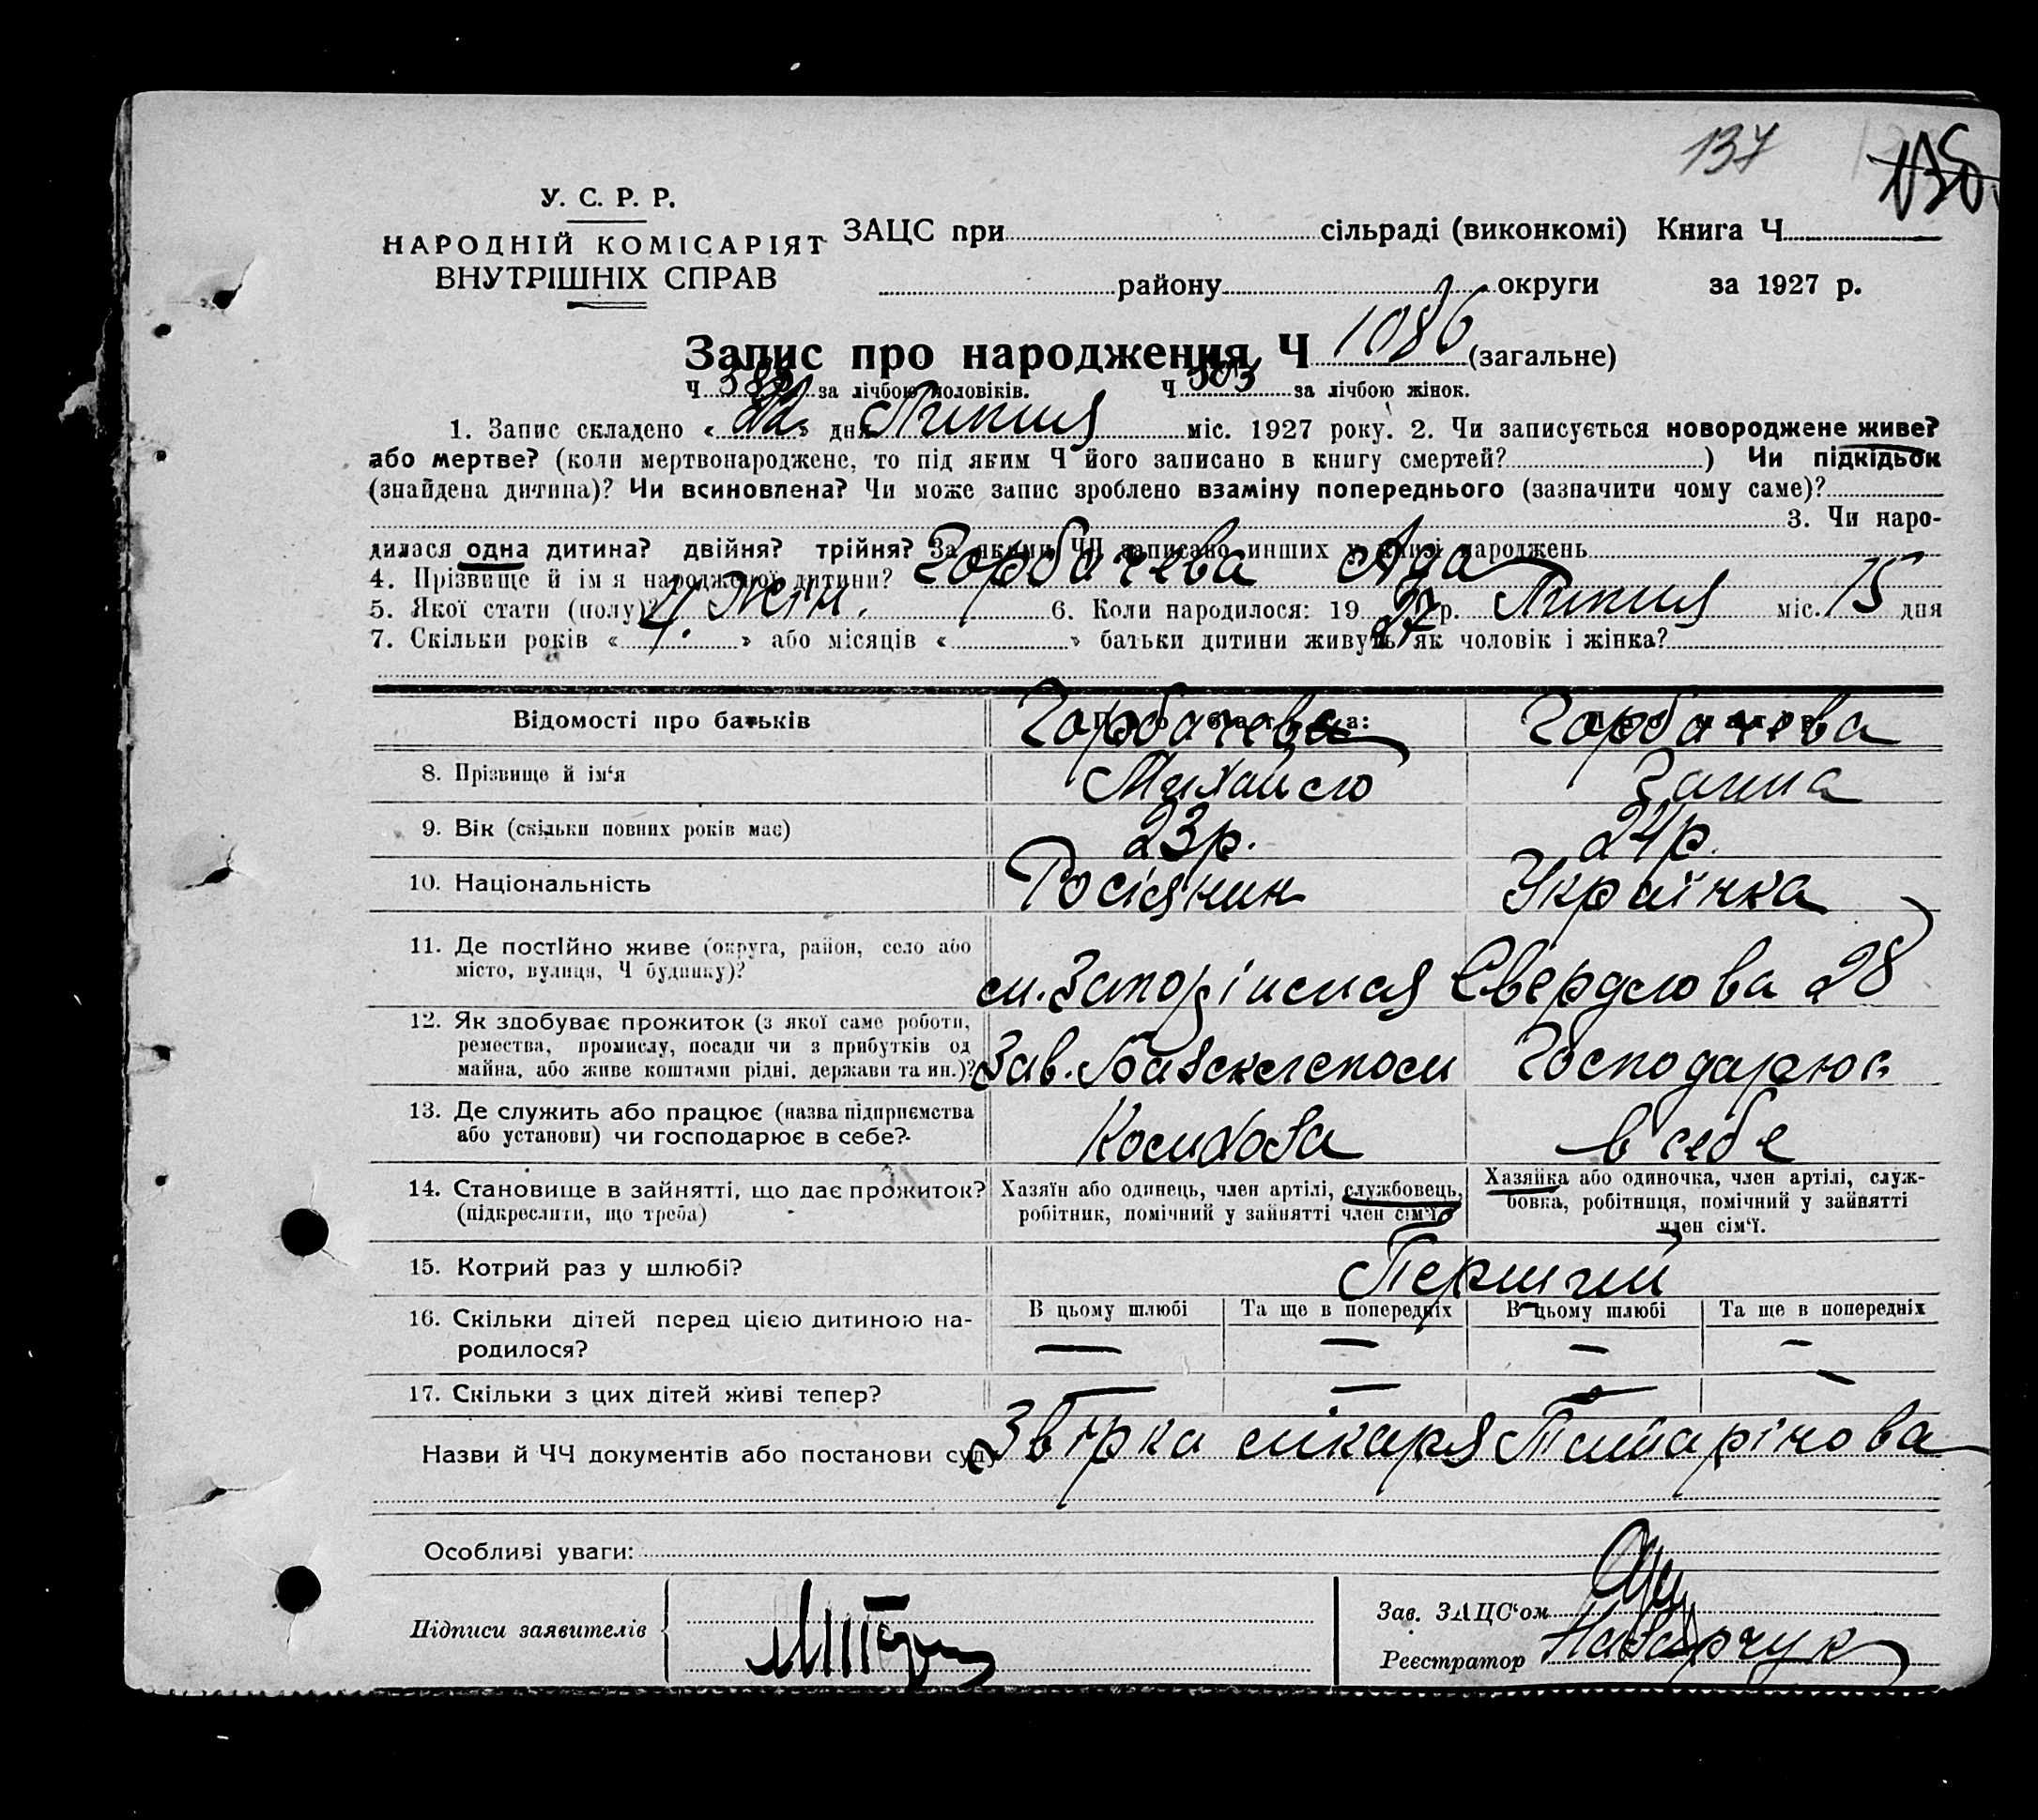 137
У. С. Р. Р.
НАРОДНІЙ КОМІСАРІЯТ
ВНУТРІШНІХ СПРАВ
ЗАЦС при сільраді (виконкомі) Книга Ч
району округи за 1927 р.
Запис про народження Ч 1086 (загальне)
Ч за лічбою чоловіків. Ч 503 за лічбою жінок.
1. Запис складено « » дня Липня міс. 1927 року. 2. Чи записується новороджене живе?
або мертве? (коли мертвонароджене, то під яким Ч його записано в книгу смертей? ) Чи підкідьок
(знайдена дитина)? Чи всиновлена? Чи може запис зроблено взаміну попереднього (зазначити чому саме)?
3. Чи наро-
дилася одна дитина? двійня? трійня? За якими ЧЧ записано инших у книзі народжень
4. Прізвище й ім'я народженої дитини? Горбачева Ада
5. Якої стати (полу)? Жін. 6. Коли народилося: 1927 р. Липня міс. 15 дня
7. Скільки років « 4 » або місяців « » батьки дитини живуть як чоловік і жінка?
Відомості про батьків Про батька: Про матір:
8. Прізвище й ім'я Горбачева Михайло Горбачова Ганна
9. Вік (скільки повних років має) 23р. 24р.
10. Національність Росіянин Українка
11. Де постійно живе (округа, район, село або
місто, вулиця, Ч будинку)? Свердлова 28
12. Як здобуває прожиток (з якої саме роботи,
ремества, промислу, посади чи з прибутків од
майна, або живе коштами рідні, держави та ин.)? Зав. Господарює
13. Де служить або працює (назва підприємства
або установи) чи господарює в себе? в себе
14. Становище в зайнятті, що дає прожиток?
(підкреслити, що треба)
Хазяїн або одинець, член артілі, службовець,
робітник, помічний у зайнятті член сім'ї
Хазяйка або одиночка, член артілі, служ-
бовка, робітниця, помічний у зайнятті
член сім'ї.
15. Котрий раз у шлюбі? Перший
16. Скільки дітей перед цією дитиною на-
родилося?
В цьому шлюбі Та ще в попередніх В цьому шлюбі Та ще в попередніх
— — — —
17. Скільки з цих дітей живі тепер? — — — —
Назви й ЧЧ документів або постанови суду лікаря
Особливі уваги:
Підписи заявителів
Зав. ЗАЦС'ом
Реєстратор Назарчук